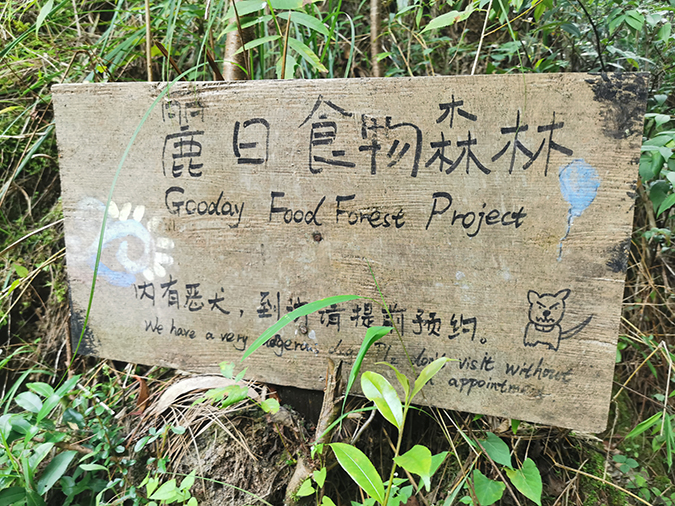 麗日食物森林
Gooday Food Forest Project
内有恶犬，到访请提前预约。
We have a very Plz don't visit without
appointment